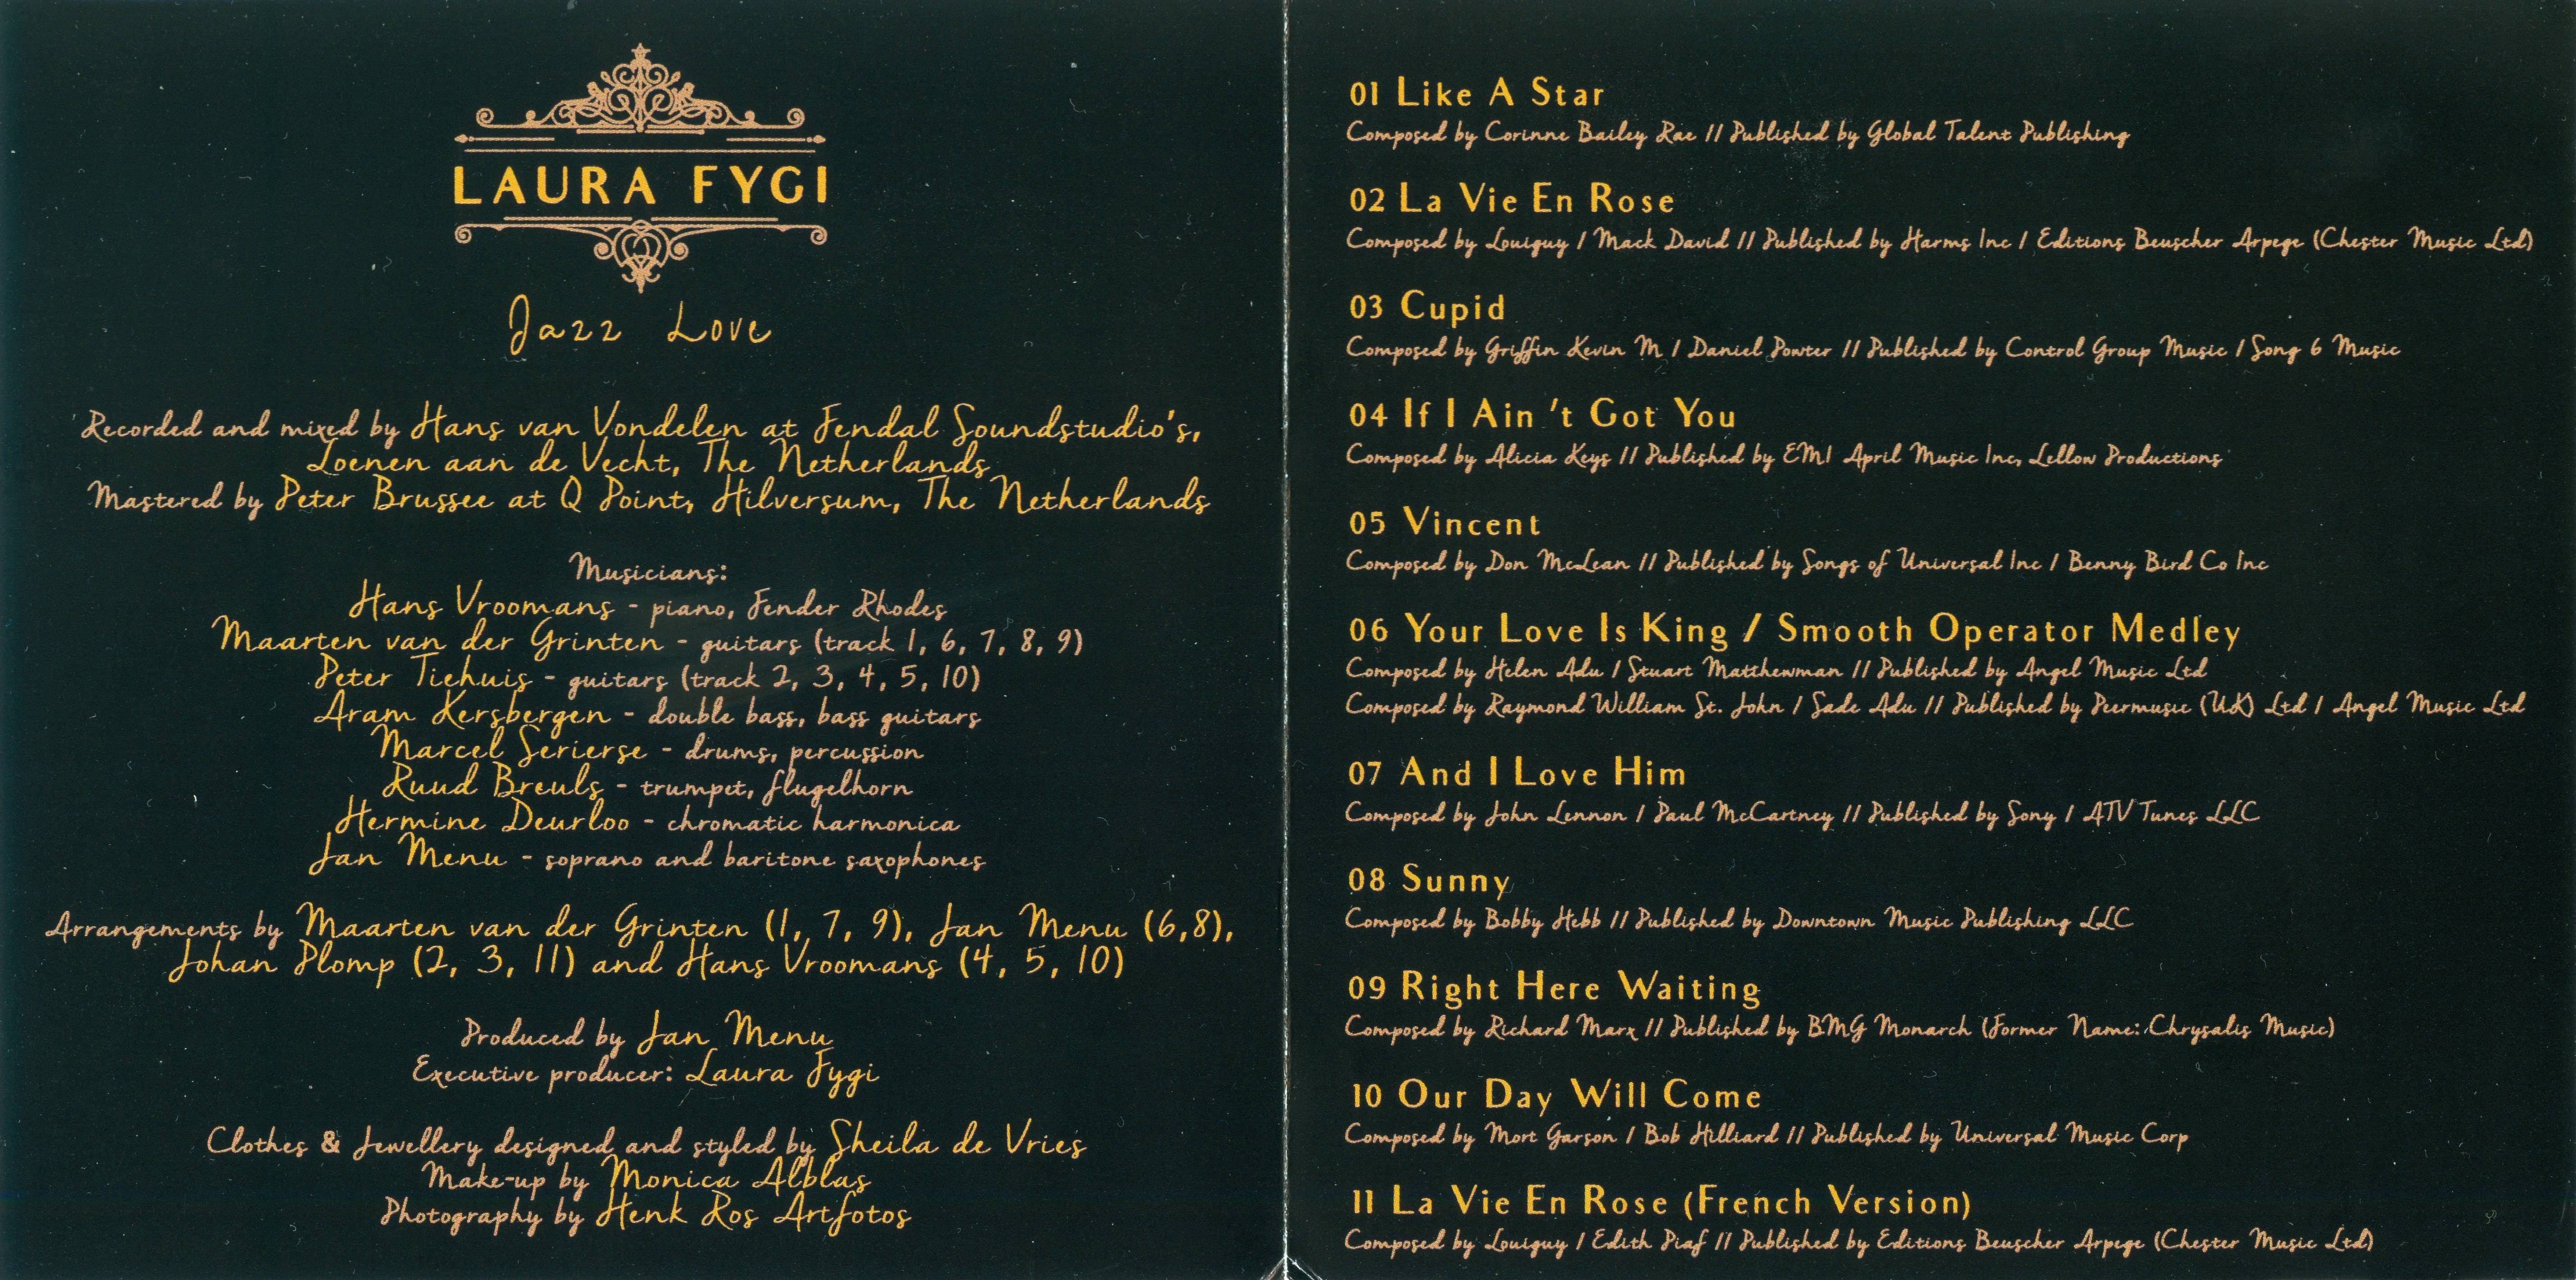 LAURA FYGI
Jazz Love
Recorded and mixed by Hans van Vondelen at Fendal Soundstudio's,
Loenen aan de Vecht, The Netherlands
Mastered by Peter Brussee at Q Point, Hilversum, The Netherlands
Musicians:
Hans Vroomans - piano, Fender Rhodes
Maarten van der Grinten - guitars (track 1, 6, 7, 8, 9)
Peter Tiehuis - guitars (track 2, 3, 4, 5, 10)
Aram Kersbergen - double bass, bass guitars
Marcel Serierse - drums, percussion
Ruud Breuls - trumpet, flugelhorn
Hermine Deurloo - chromatic harmonica
Jan Menu - soprano and baritone saxophones
Arrangements by Maarten van der Grinten (1, 7, 9), Jan Menu (6,8),
Johan Plomp (2, 3, 11) and Hans Vroomans (4, 5, 10)
Produced by Jan Menu
Executive producer: Laura Fygi
Clothes & Jewellery designed and styled by Sheila de Vries
Make-up by Monica Alblas
Photography by Henk Ros Artfotos
01 Like A Star
Composed by Corinne Bailey Rae // Published by Global Talent Publishing
02 La Vie En Rose
Composed by Louiguy / Mack David // Published by Harms Inc / Editions Beuscher Arpege (Chester Music Ltd)
03 Cupid
Composed by Griffin Kevin M / Daniel Powter // Published by Control Group Music / Song 6 Music
04 If I Ain 't Got You
Composed by Alicia Keys // Published by EMI April Music Inc, Lellow Productions
05 Vincent
Composed by Don McLean // Published by Songs of Universal Inc / Benny Bird Co Inc
06 Your Love Is King / Smooth Operator Medley
Composed by Helen Adu / Stuart Matthewman // Published by Angel Music Ltd
Composed by Raymond William St. John / Sade Adu // Published by Peermusic (UK) Ltd / Angel Music Ltd
07 And I Love Him
Composed by John Lennon / Paul McCartney // Published by Sony / ATV Tunes LLC
08 Sunny
Composed by Bobby Hebb // Published by Downtown Music Publishing LLC
09 Right Here Waiting
Composed by Richard Marx // Published by BMG Monarch (Former Name: Chrysalis Music)
10 Our Day Will Come
Composed by Mort Garson / Bob Hilliard // Published by Universal Music Corp
11 La Vie En Rose (French Version)
Composed by Louiguy / Edith Piaf // Published by Editions Beuscher Arpege (Chester Music Ltd)